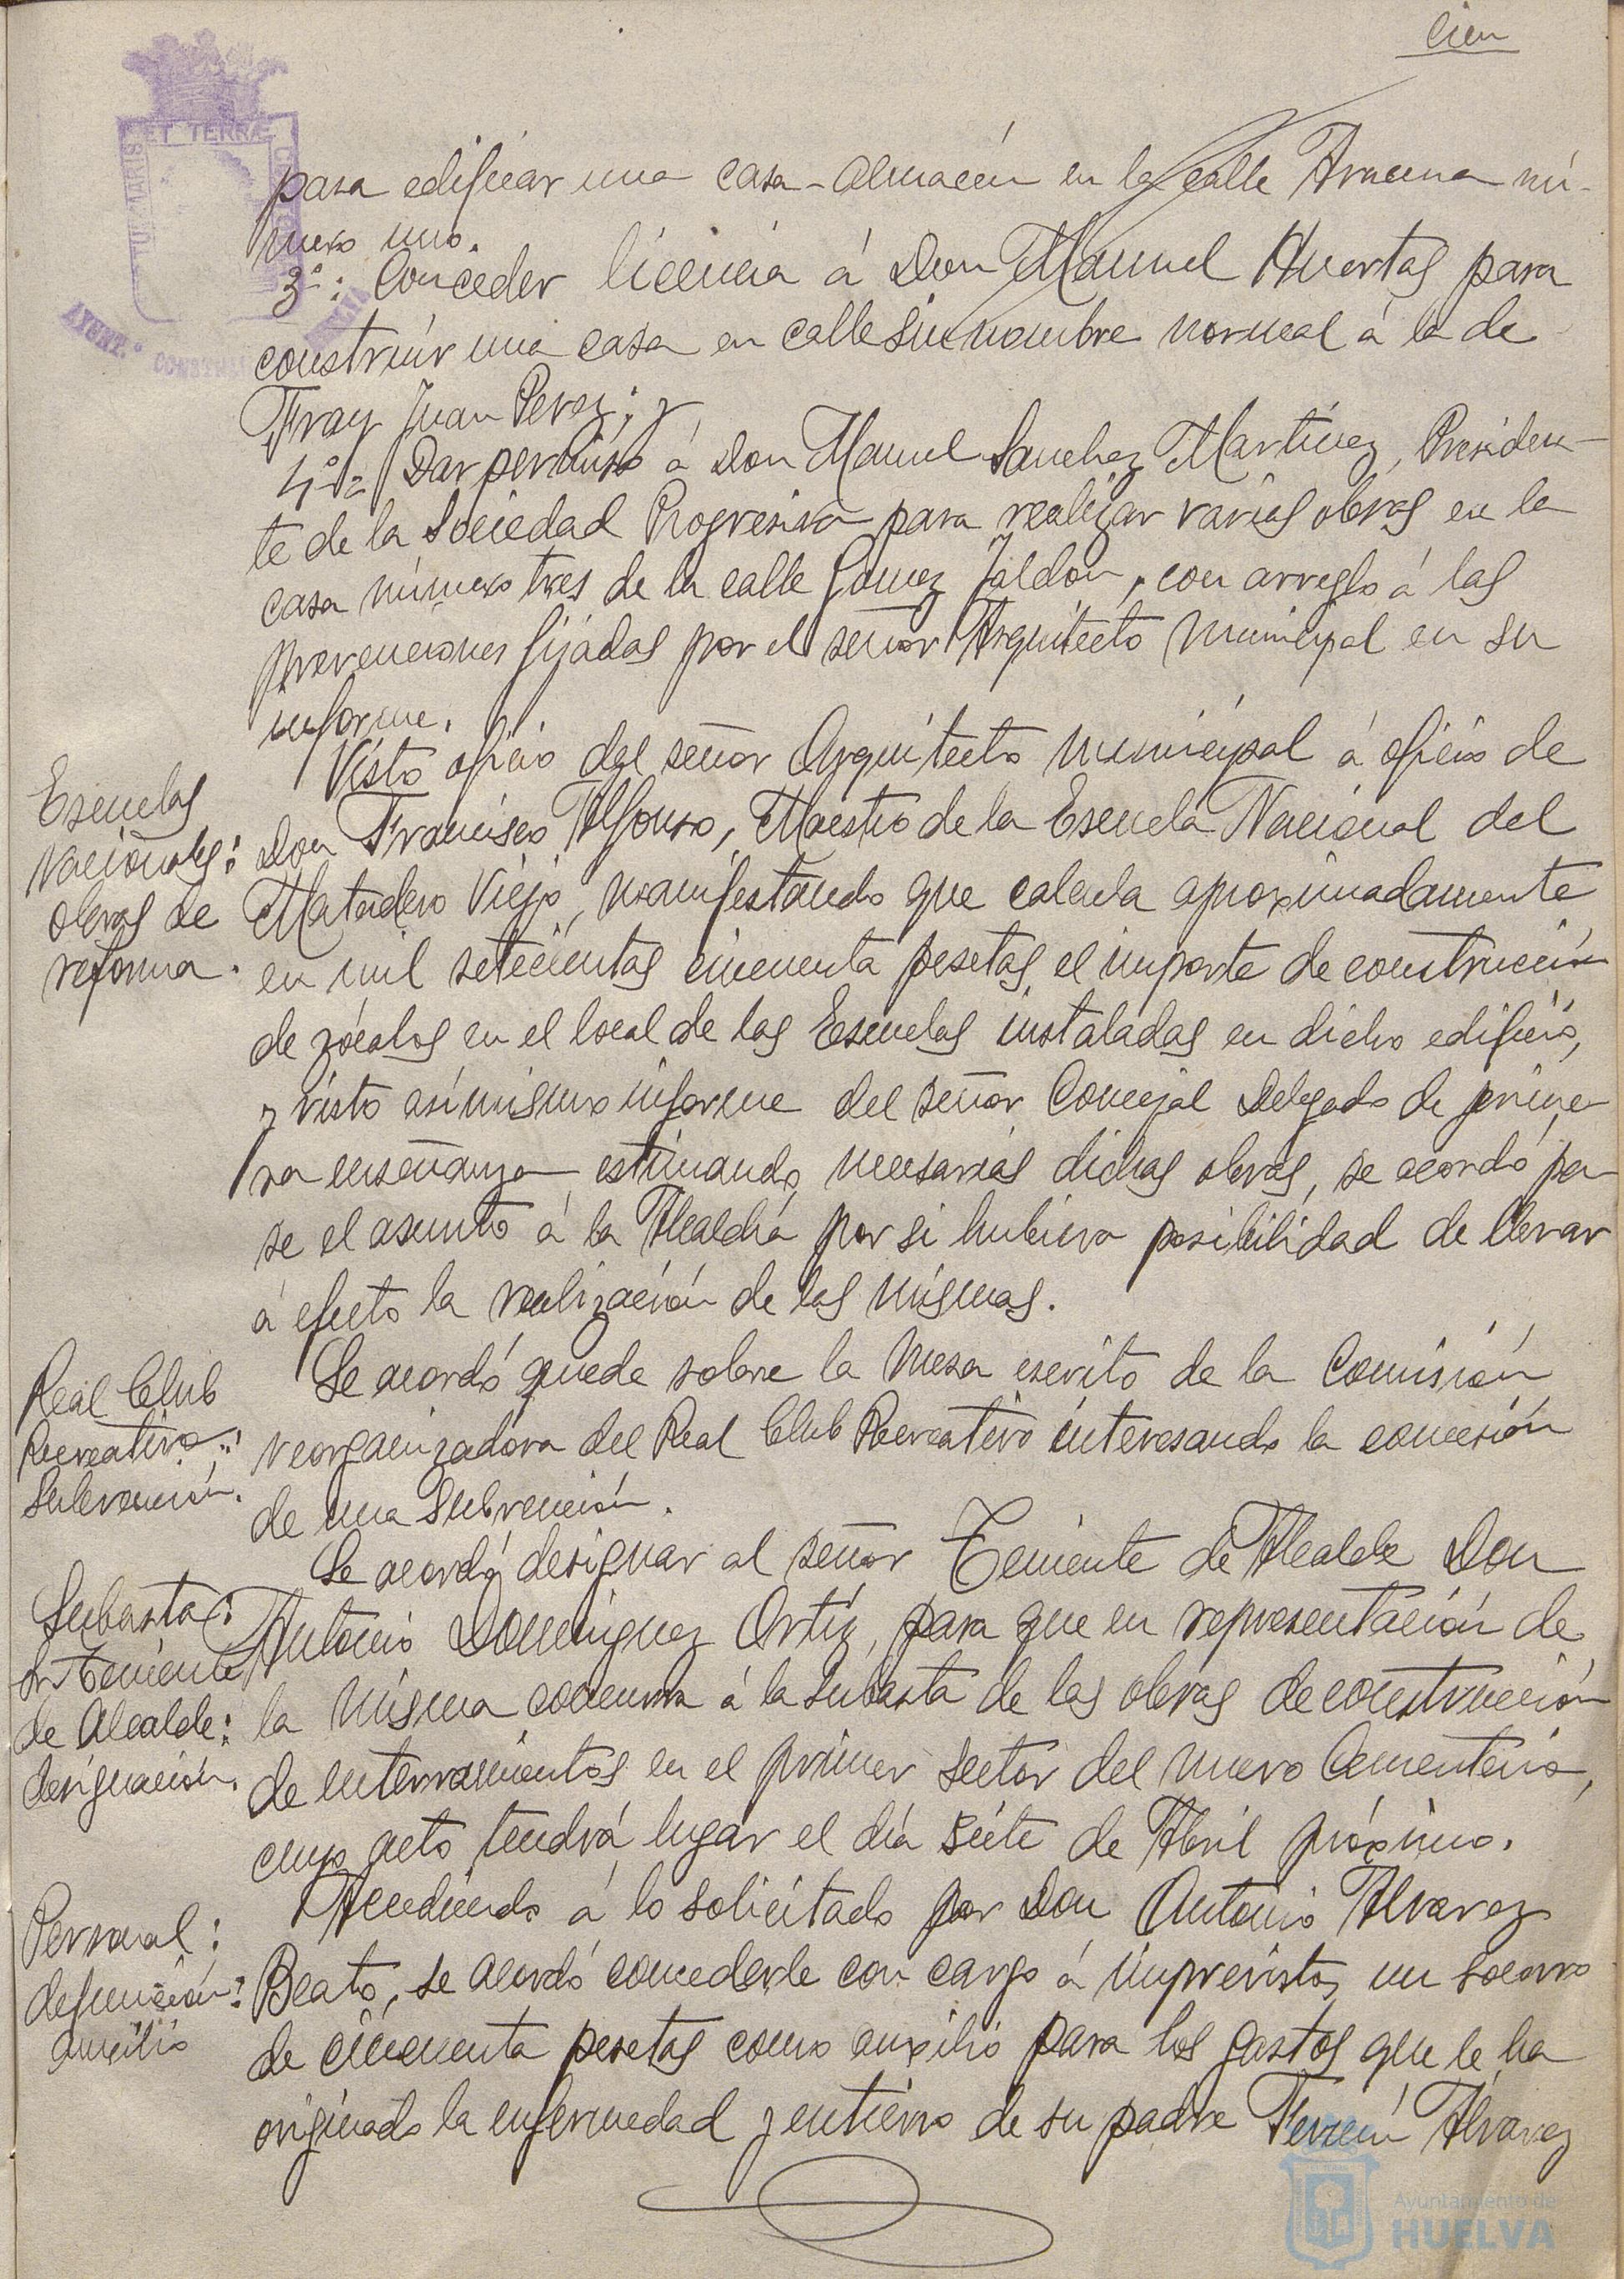 cien
para edificar una casa-almacén en la calle Aracena nú-
mero uno.
3º: Conceder licencia á Don Manuel Huertas para
construir una casa en calle sin nombre normal á la de
Fray Juan Perez; y
4º= Dar permiso á Don Manuel Sanchez Martínez, Presiden-
te de la Sociedad Progresiva para realizar varias obras en la
casa número tres de la calle Gomez Jaldon, con arreglo á las
prevenciones fijadas por el señor Arquitecto municipal en su
informe.
Escuelas
Nacionales:
obras de
reforma.
Visto oficio del señor Arquitecto municipal á oficio de
Don Francisco Alfonso, Maestro de la Escuela Nacional del
Matadero Viejo, manifestando que calcula aproximadamente
en mil setecientas cincuenta pesetas el importe de construcción
de zócalos en el local de las Escuelas instaladas en dicho edificio,
y visto asimismo informe del señor Concejal Delegado de prime-
ra enseñanza estimando necesarias dichas obras, se acordó pa-
se el asunto á la Alcaldía por si hubiera posibilidad de llevar
á efecto la realización de las mismas.
Real Club
Recreativo:
Subvención.
Se acordó quede sobre la mesa escrito de la Comisión
reorganizadora del Real Club Recreativo interesando la concesión
de una subvención.
Subasta:
Sr. Teniente
de Alcalde:
designación.
Se acordó designar al señor Teniente de Alcalde Don
Antonio Domínguez Ortíz, para que en representación de
la misma concurra á la subasta de las obras de construcción
de enterramientos en el primer sector del nuevo Cementerio,
cuyo acto tendrá lugar el día siete de Abril próximo.
Personal:
defunción:
auxilio
Accediendo á lo solicitado por Don Antonio Alvarez
Beato, se acordó concederle con cargo á imprevistos un socorro
de cincuenta pesetas como auxilio para los gastos que le ha
originado la enfermedad y entierro de su padre Fermín Alvarez
ET TERRÆ
AYUNT.º CONSTITU
Ayuntamiento de
HUELVA